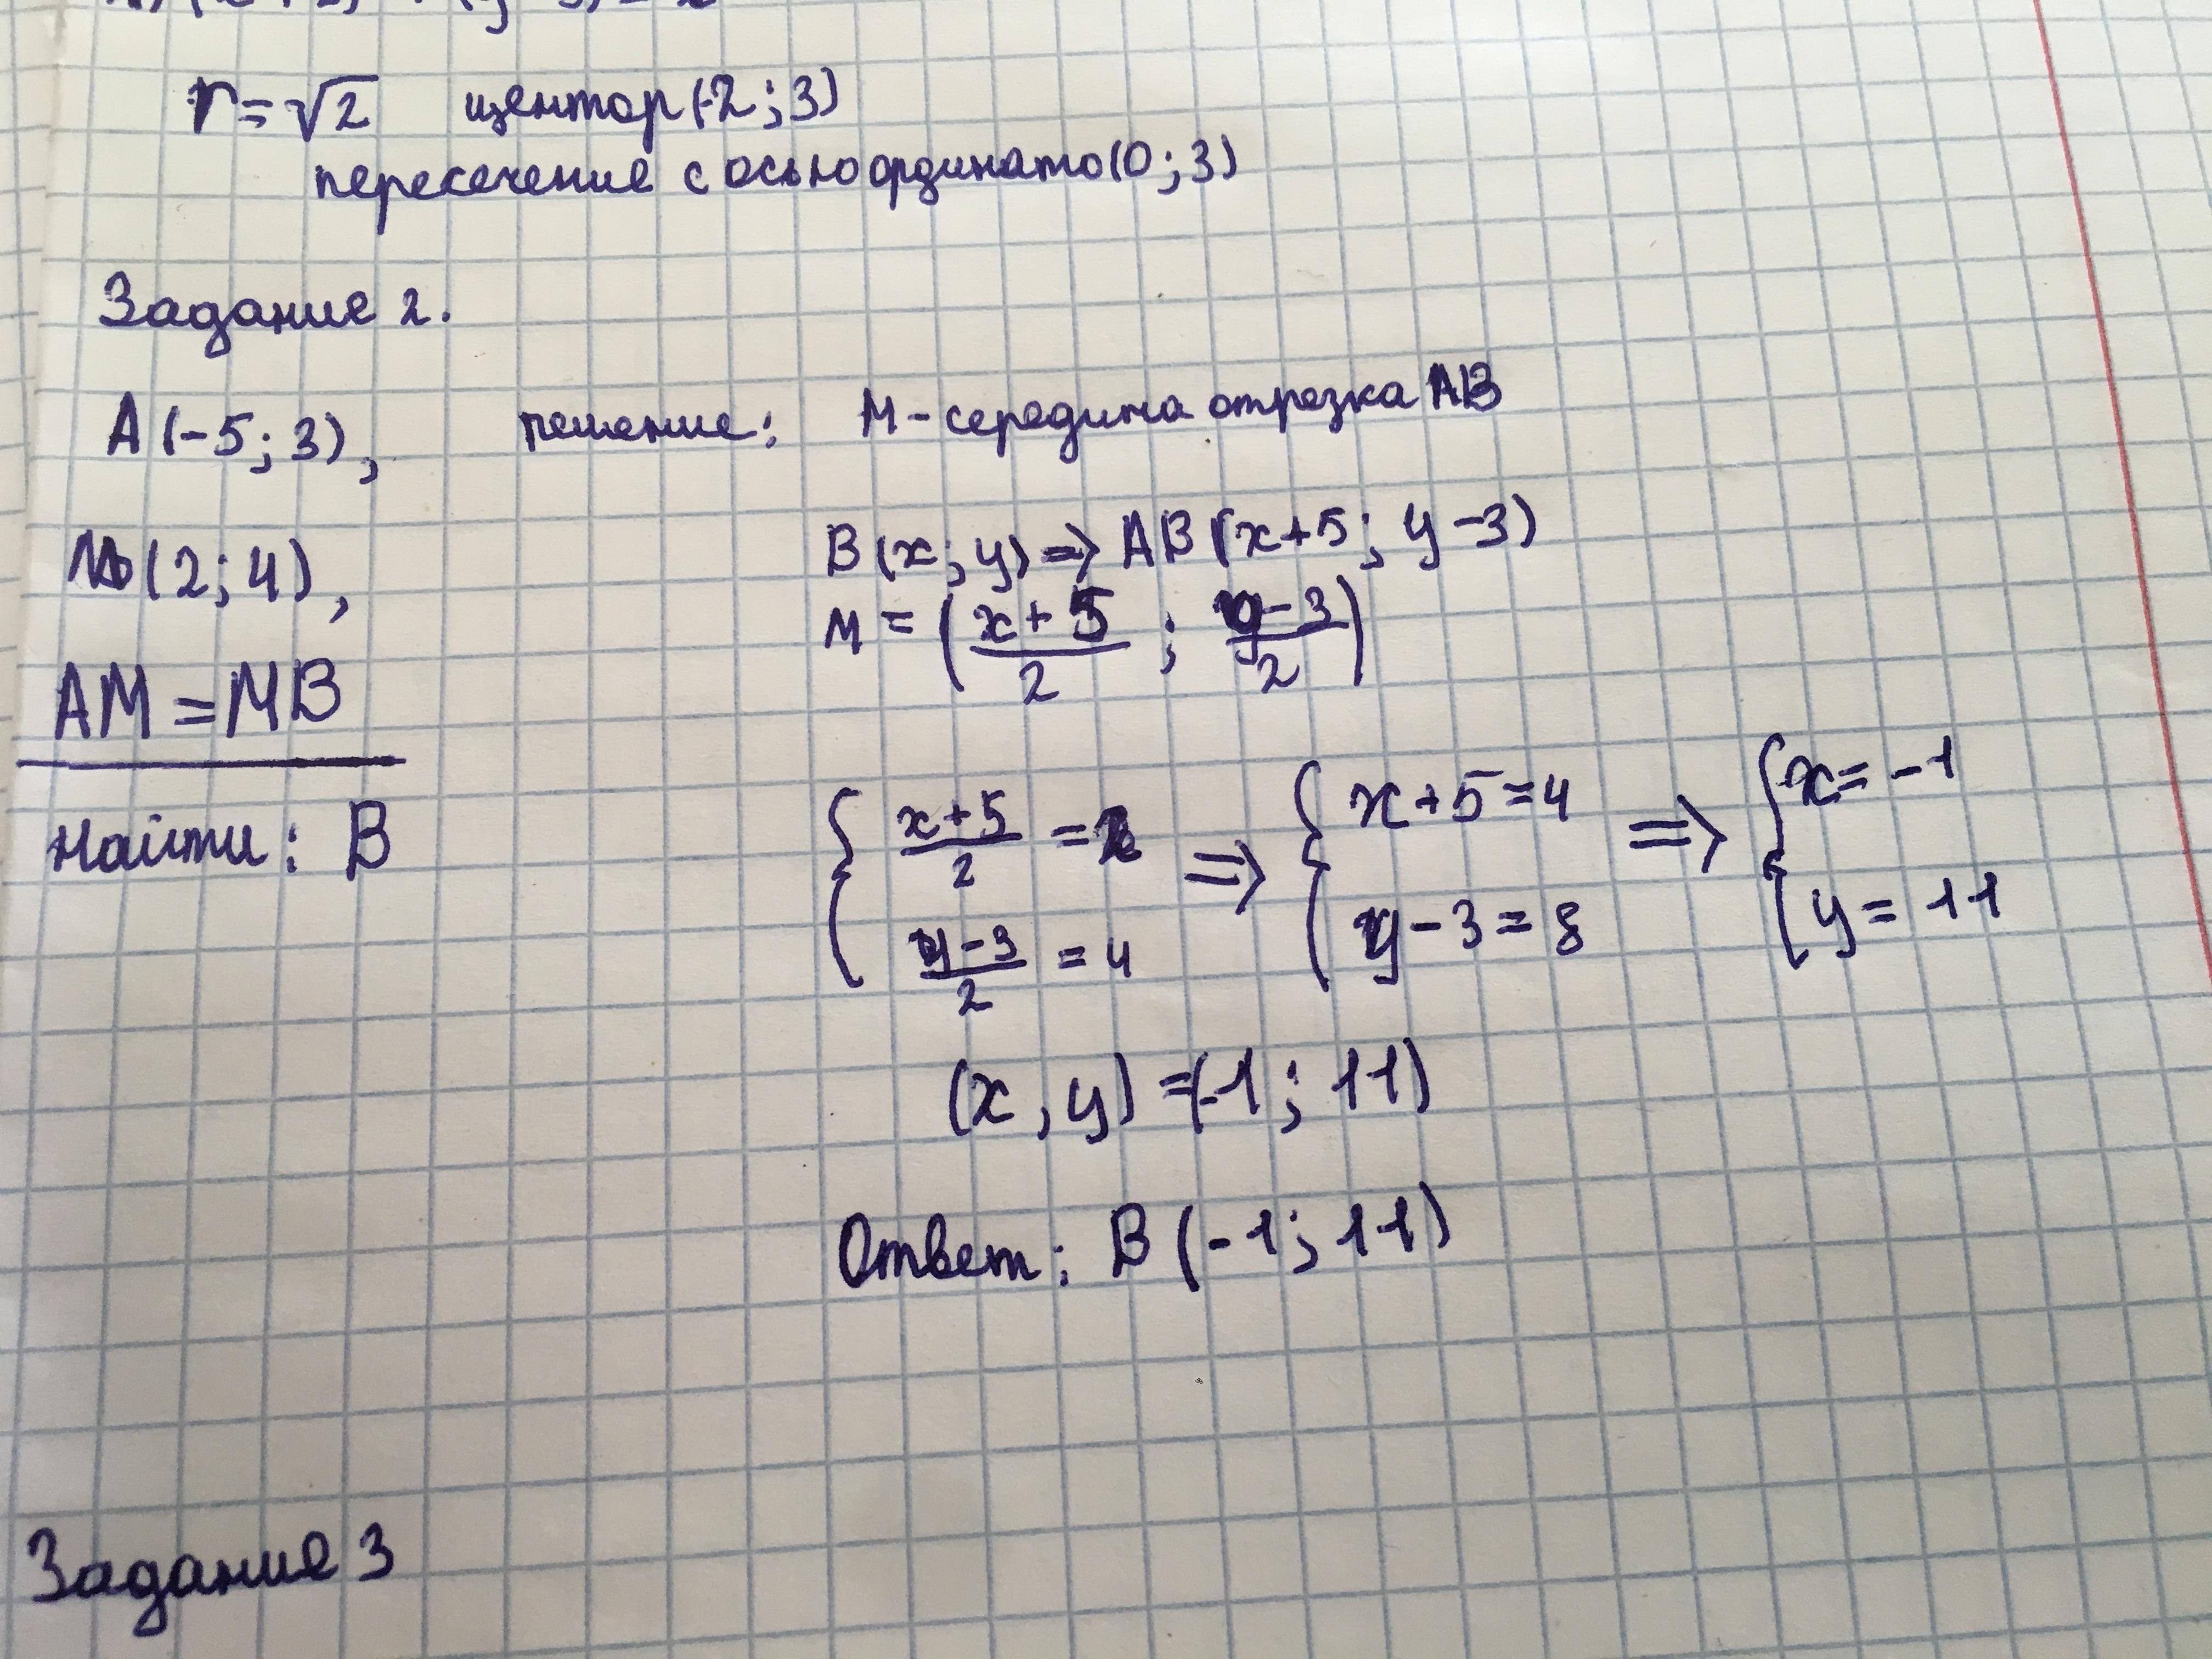 r = √2 центор (-2; 3)
пересечение с осью ординато (0; 3)
Задание 2.
A (-5; 3), решение: M - середина отрезка AB
M (2; 4),
B (x; y) => AB (x+5; y-3)
M = ((x+5)/2; (y-3)/2)
AM = MB
Найти: B
{ (x+5)/2 = 2 => { x+5=4 => { x = -1
(y-3)/2 = 4 y-3=8 y = 11
(x, y) = (-1; 11)
Ответ: B (-1; 11)
Задание 3